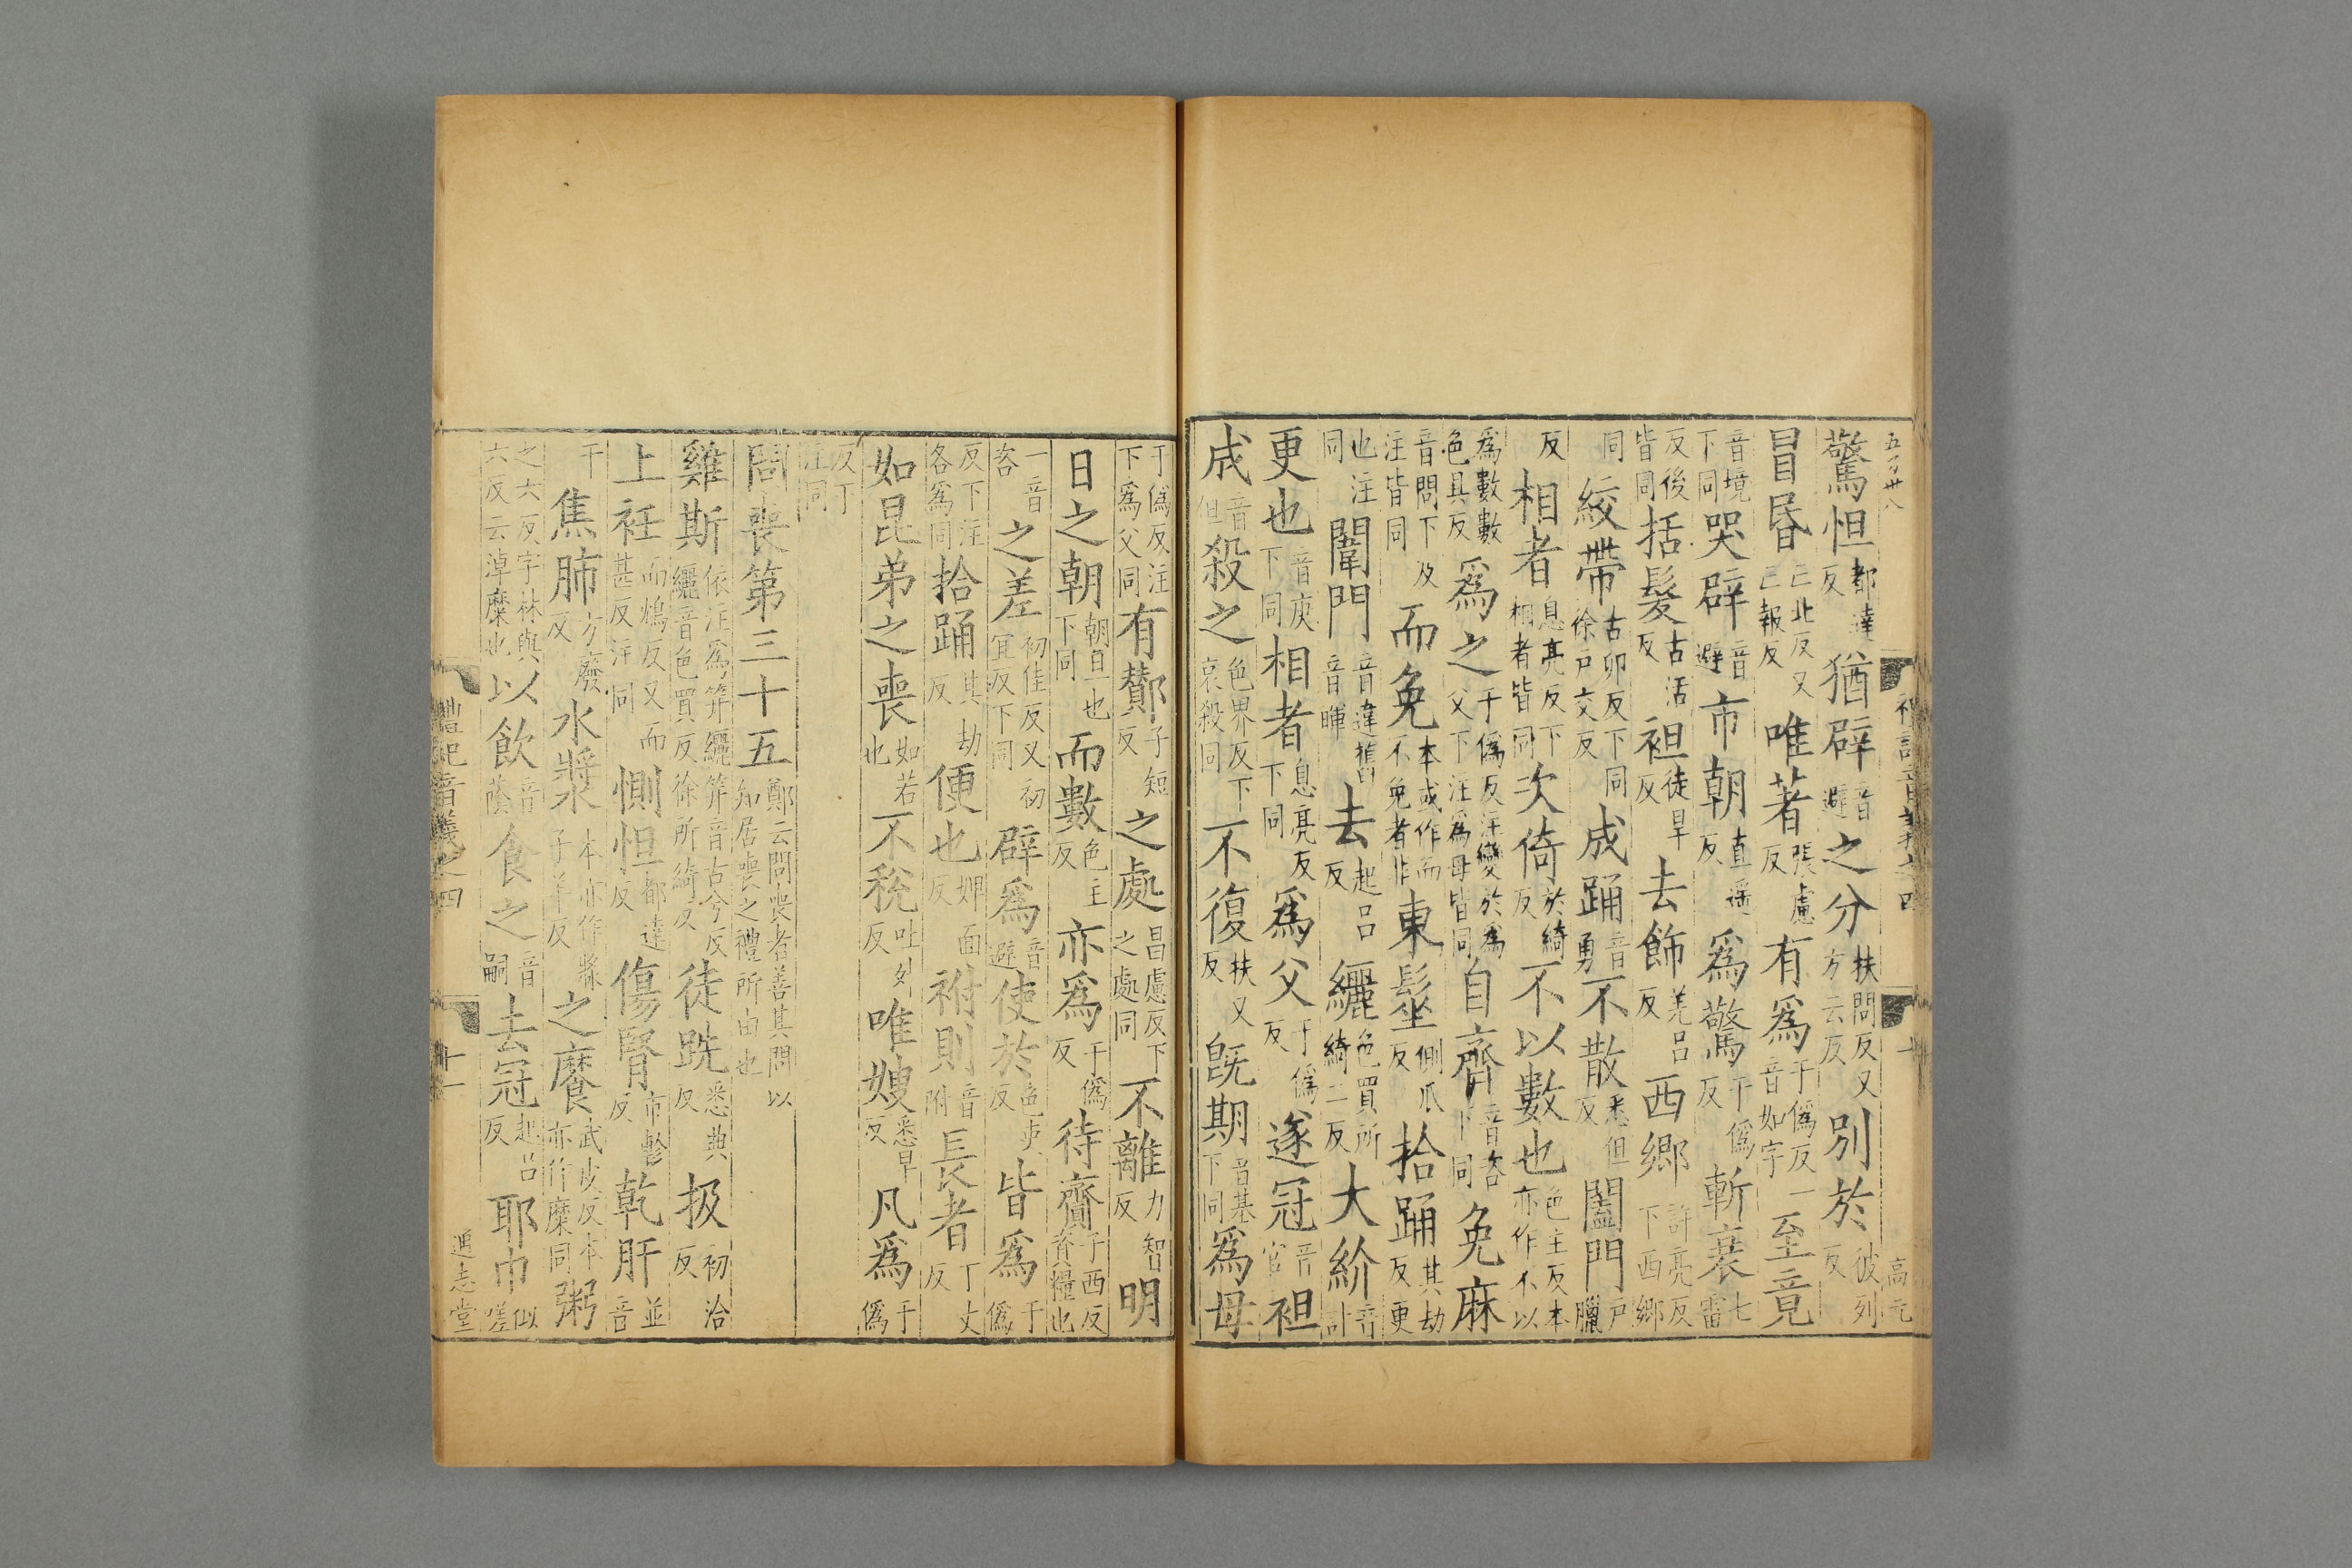 驚怛都達反猶辟音避之分扶問反又方云反別於彼列反
冒昬亡北反又亡報反唯著張慮反有爲于僞反一音如字至竟
音境下同哭辟音避市朝直遥反爲驚于僞反斬衰七雷
反後皆同括髮古活反袒徒旱反去飾羌呂反西鄉許亮反下西鄉
同絞帶古卯反下同徐戶交反成踊音勇不散悉但反闔門戶臘
反相者息亮反下相者皆同次倚於綺反不以數也色主反本亦作不以
爲數數色具反爲之于僞反注變於爲父下注爲母皆同自齊音咨下同免麻
音問下及注皆同而免本或作而不免者非東髽側爪反拾踊其劫反更
也注同闈門音違舊音暉去起呂反纚色買所綺二反大紒音計
更也音庚下同相者息亮反下同爲父于僞反遂冠音官袒
成音但殺之色界反下哀殺同不復扶又反旣期音基下同爲母
于僞反注下爲父同有酇子短反之處昌慮反下之處同不離力智反明
日之朝朝旦也下同而數色主反亦爲于僞反待齎子西反資糧也
一音咨之差初佳反又初宜反下同辟爲音避使於色吏反皆爲于僞
反下注各爲同拾踊其劫反便也婢面反祔則音附長者丁丈反
如昆弟之喪如若也不稅吐外反唯嫂悉早反凡爲于僞
反丁注同
問喪第三十五鄭云問喪者善其問以知居喪之禮所由也
雞斯依注爲笄纚笄音古兮反纚音色買反徐所綺反徒跣悉典反扱初洽反
上衽而鴆反又而甚反注同惻怛都達反傷腎市軫反乾肝並音
干焦肺方廢反水漿本亦作𤖅子羊反之糜武皮反本亦作糜同粥
之六反字林與六反云淖糜也以飮音蔭食之音嗣去冠起呂反耶巾似嗟
五百卅八
禮記音義之四
十
高元
禮記音義之四
十一
通志堂